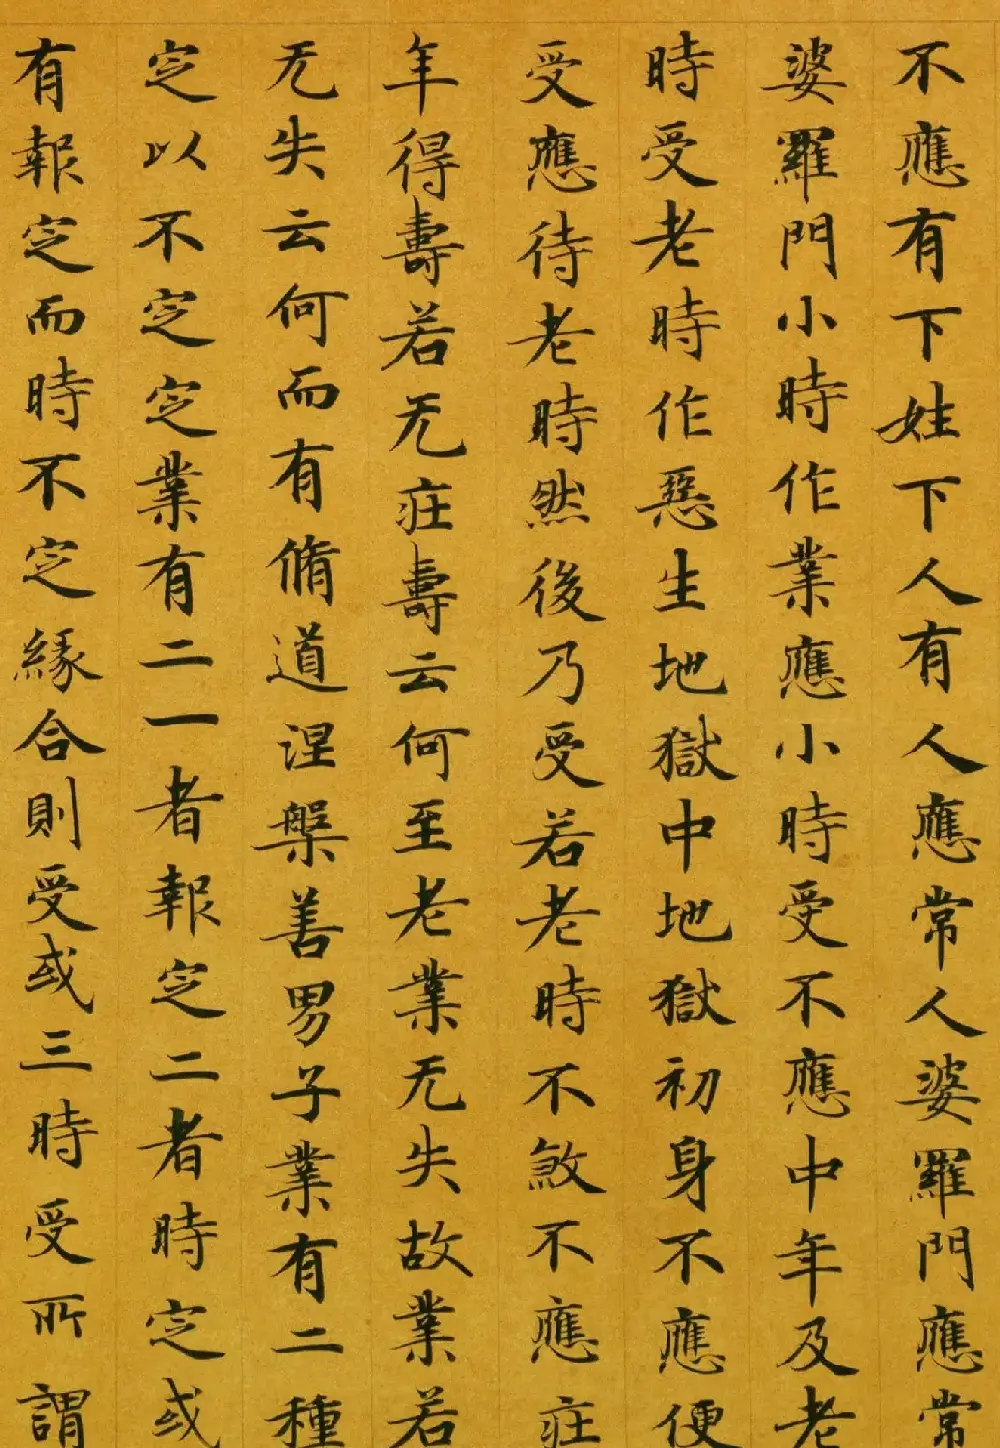 不應有下姓下人有人應常人婆羅門應常
婆羅門小時作業應小時受不應中年及老
時受老時作惡生地獄中地獄初身不應便
受應待老時然後乃受若老時不煞不應莊
年得壽若无莊壽云何至老業无失故業若
无失云何而有脩道涅槃善男子業有二種
定以不定定業有二一者報定二者時定或
有報定而時不定緣合則受或三時受所謂